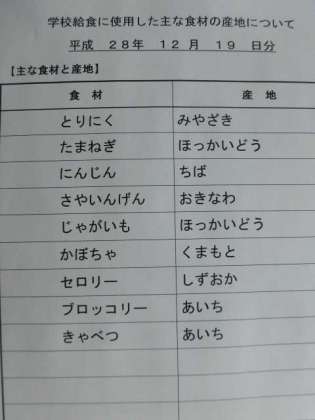 学校給食に使用した主な食材の産地について
平成 28年 12月 19 日分
【主な食材と産地】
食 材 産 地
とりにく みやざき
たまねぎ ほっかいどう
にんじん ちば
さやいんげん おきなわ
じゃがいも ほっかいどう
かぼちゃ くまもと
セロリー しずおか
ブロッコリー あいち
きゃべつ あいち